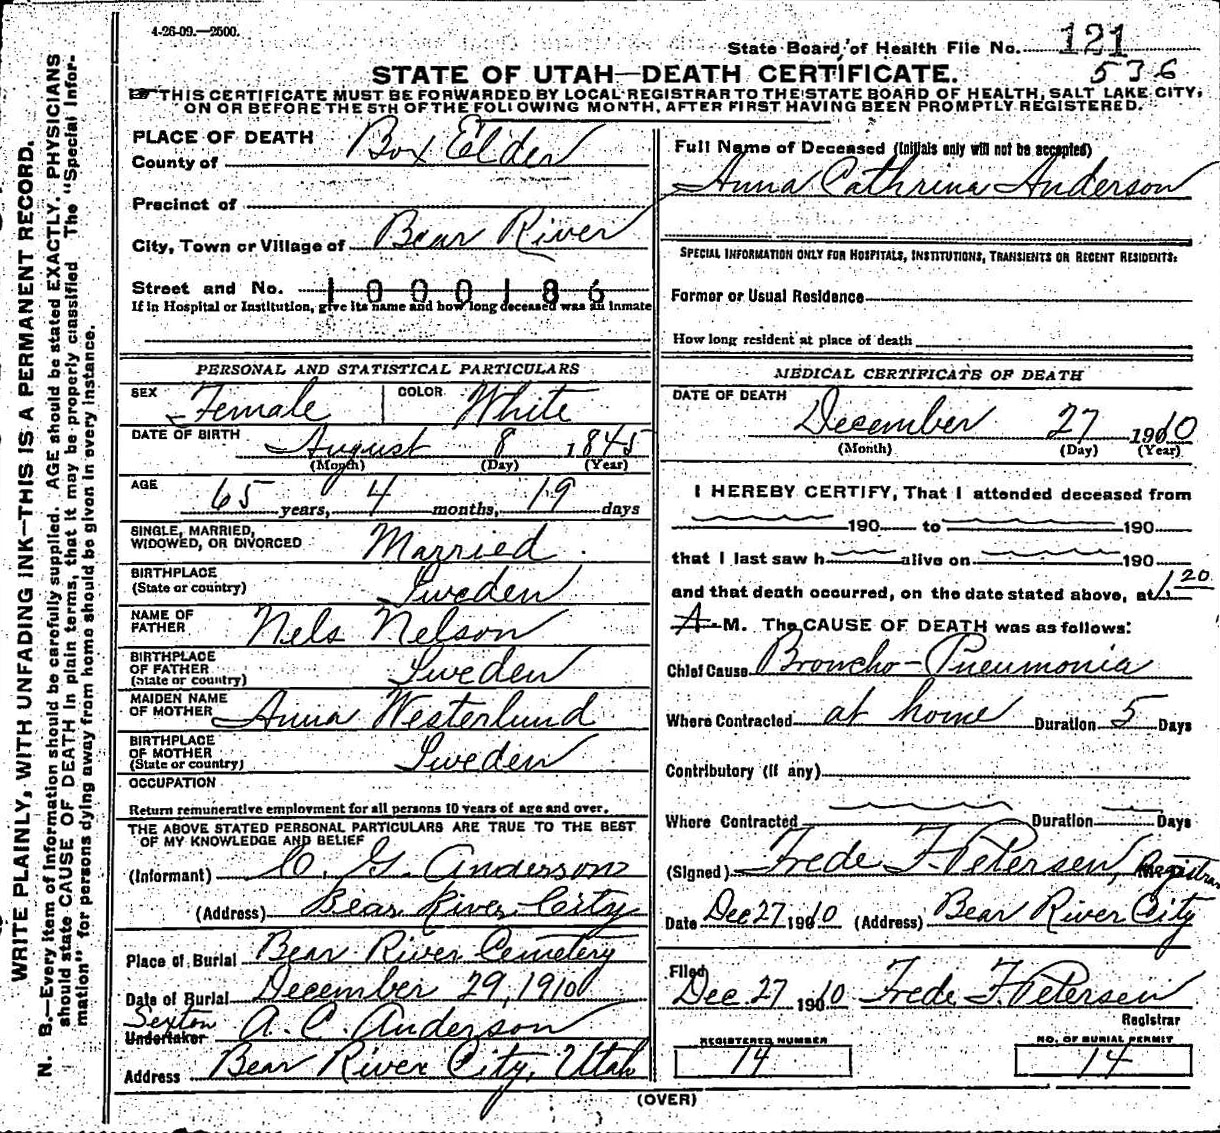 4-26-09.—2500.
State Board of Health File No. 121
536
STATE OF UTAH—DEATH CERTIFICATE.
THIS CERTIFICATE MUST BE FORWARDED BY LOCAL REGISTRAR TO THE STATE BOARD OF HEALTH, SALT LAKE CITY,
ON OR BEFORE THE 5TH OF THE FOLLOWING MONTH, AFTER FIRST HAVING BEEN PROMPTLY REGISTERED.
WRITE PLAINLY, WITH UNFADING INK—THIS IS A PERMANENT RECORD.
N. B.—Every item of information should be carefully supplied. AGE should be stated EXACTLY. PHYSICIANS
should state CAUSE OF DEATH in plain terms, that it may be properly classified The "Special Infor-
mation" for persons dying away from home should be given in every instance.
PLACE OF DEATH
County of Box Elder
Precinct of
City, Town or Village of Bear River
Street and No. 1000186
If in Hospital or Institution, give its name and how long deceased was an inmate
PERSONAL AND STATISTICAL PARTICULARS
SEX Female COLOR White
DATE OF BIRTH August 8 1845
(Month) (Day) (Year)
AGE 65 years, 4 months, 19 days
SINGLE, MARRIED,
WIDOWED, OR DIVORCED Married
BIRTHPLACE
(State or country) Sweden
NAME OF
FATHER Nels Nelson
BIRTHPLACE
OF FATHER
(State or country) Sweden
MAIDEN NAME
OF MOTHER Anna Westerlund
BIRTHPLACE
OF MOTHER
(State or country) Sweden
OCCUPATION
Return remunerative employment for all persons 10 years of age and over.
THE ABOVE STATED PERSONAL PARTICULARS ARE TRUE TO THE BEST
OF MY KNOWLEDGE AND BELIEF
(Informant) G. Anderson
(Address) Bear River City
Place of Burial Bear River Cemetery
Date of Burial December 29, 1910
Sexton
Undertaker A. C. Anderson
Address Bear River City, Utah
Full Name of Deceased (Initials only will not be accepted)
Anna Cathrina Anderson
SPECIAL INFORMATION ONLY FOR HOSPITALS, INSTITUTIONS, TRANSIENTS OR RECENT RESIDENTS:
Former or Usual Residence
How long resident at place of death
MEDICAL CERTIFICATE OF DEATH
DATE OF DEATH
December 27 1910
(Month) (Day) (Year)
I HEREBY CERTIFY, That I attended deceased from
190 to 190
that I last saw h alive on 190
and that death occurred, on the date stated above, at 1 20
A M. The CAUSE OF DEATH was as follows:
Chief Cause Broncho-Pneumonia
Where Contracted at home Duration 5 Days
Contributory (if any)
Where Contracted Duration Days
(Signed) Frede F. Petersen, Registrar
Date Dec 27 1910 (Address) Bear River City
Filed
Dec 27 1910 Frede F. Petersen
Registrar
REGISTERED NUMBER
14
NO. OF BURIAL PERMIT
14
(OVER)